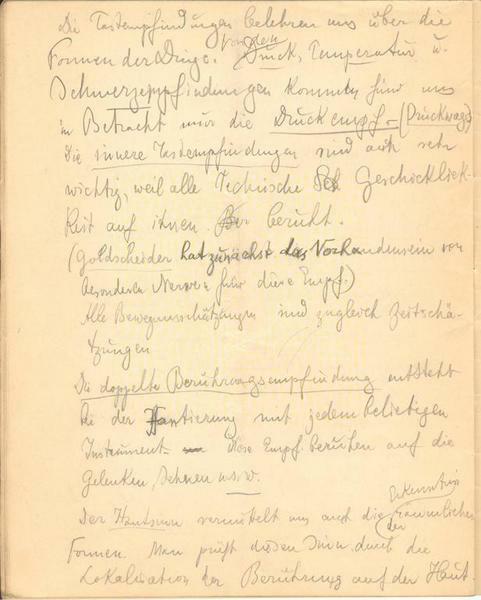 Die Tastempfindungen belehren uns über die
Formen der Dinge. Von den Druck, Temperatur u.
Schmerzempfindungen kommen für uns
in Betracht nur die Druckempf. (Druckwage)
Die innere Tastempfindungen sind auch sehr
wichtig, weil alle Technische Geschicklich-
keit auf ihnen beruht.
(Goldscheider hat zunächst das Vorhandensein von
besonderen Nerven für diese Empf.)
Alle Bewegungsschätzungen sind zugleich Zeitschä-
tzungen
Die doppelte Berührungsempfindung entsteht
bei der Hantierung mit jedem beliebigen
Instrument. Diese Empf. beruhen auf die
Gelenken, Sehnen u.s.w.
Der Hautsinn vermittelt uns auch die Erkenntnis der räumlichen
Formen. Man prüft diesen Sinn durch die
Lokalisation der Berührung auf der Haut.